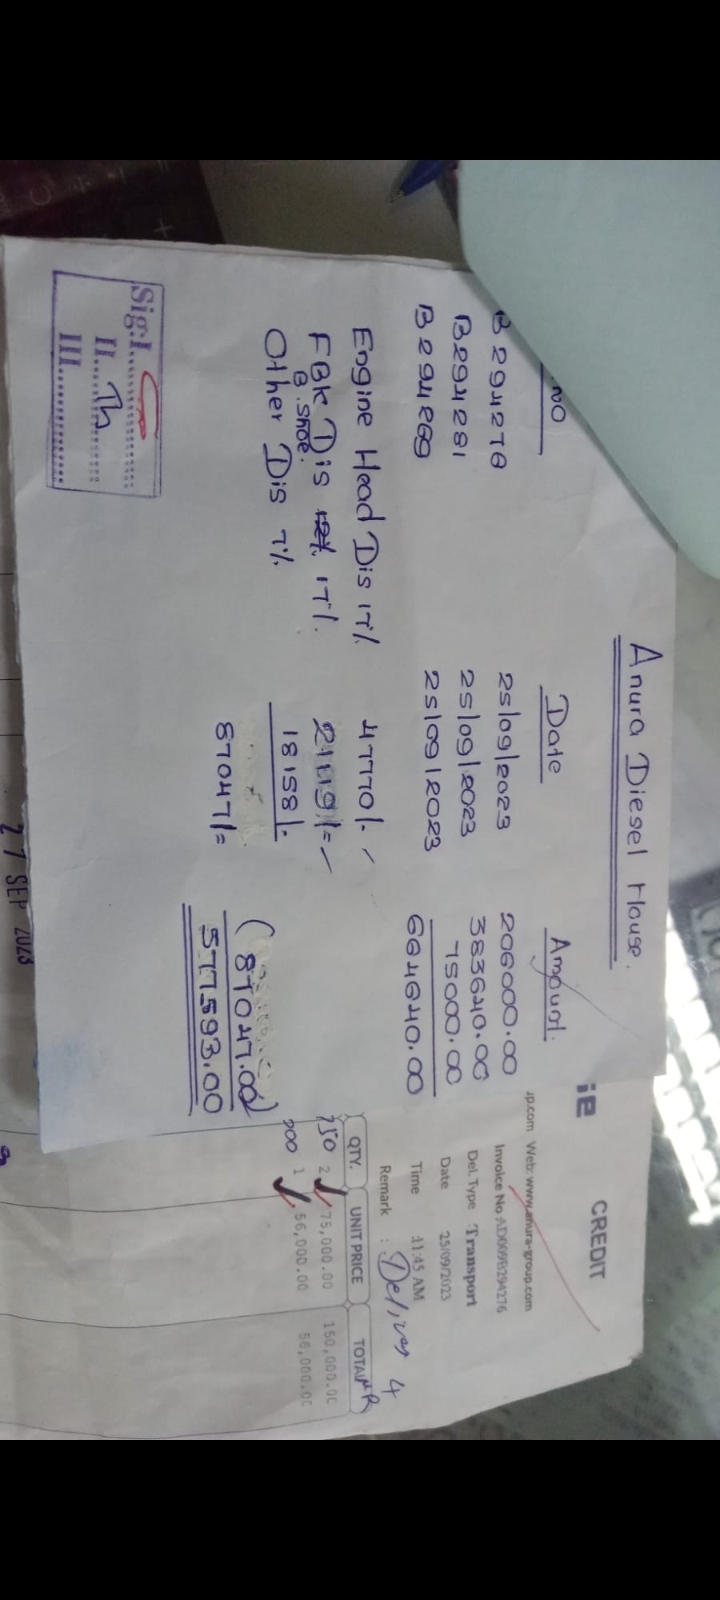 Anura Diesel House.
NO Date Amount.
B 294276 25/09/2023 206000.00
B294281 25/09/2023 383640.00
B294269 25/09/2023 75000.00
664640.00
Engine Head Dis 17% 47770/.
FBK Dis 17%. 21119/=
B.Shoe.
Other Dis 7% 18158/.
87047/= (87047.00)
577593.00
Sig:I
II
III
27 SEP 2023
CREDIT
Web: www.anura-group.com
Invoice No :AD009B294276
Del. Type :Transport
Date 25/09/2023
Time :11:45 AM
Remark : Deliver 4
QTY. UNIT PRICE TOTAL
2 75,000.00 150,000.00
1 56,000.00 56,000.00